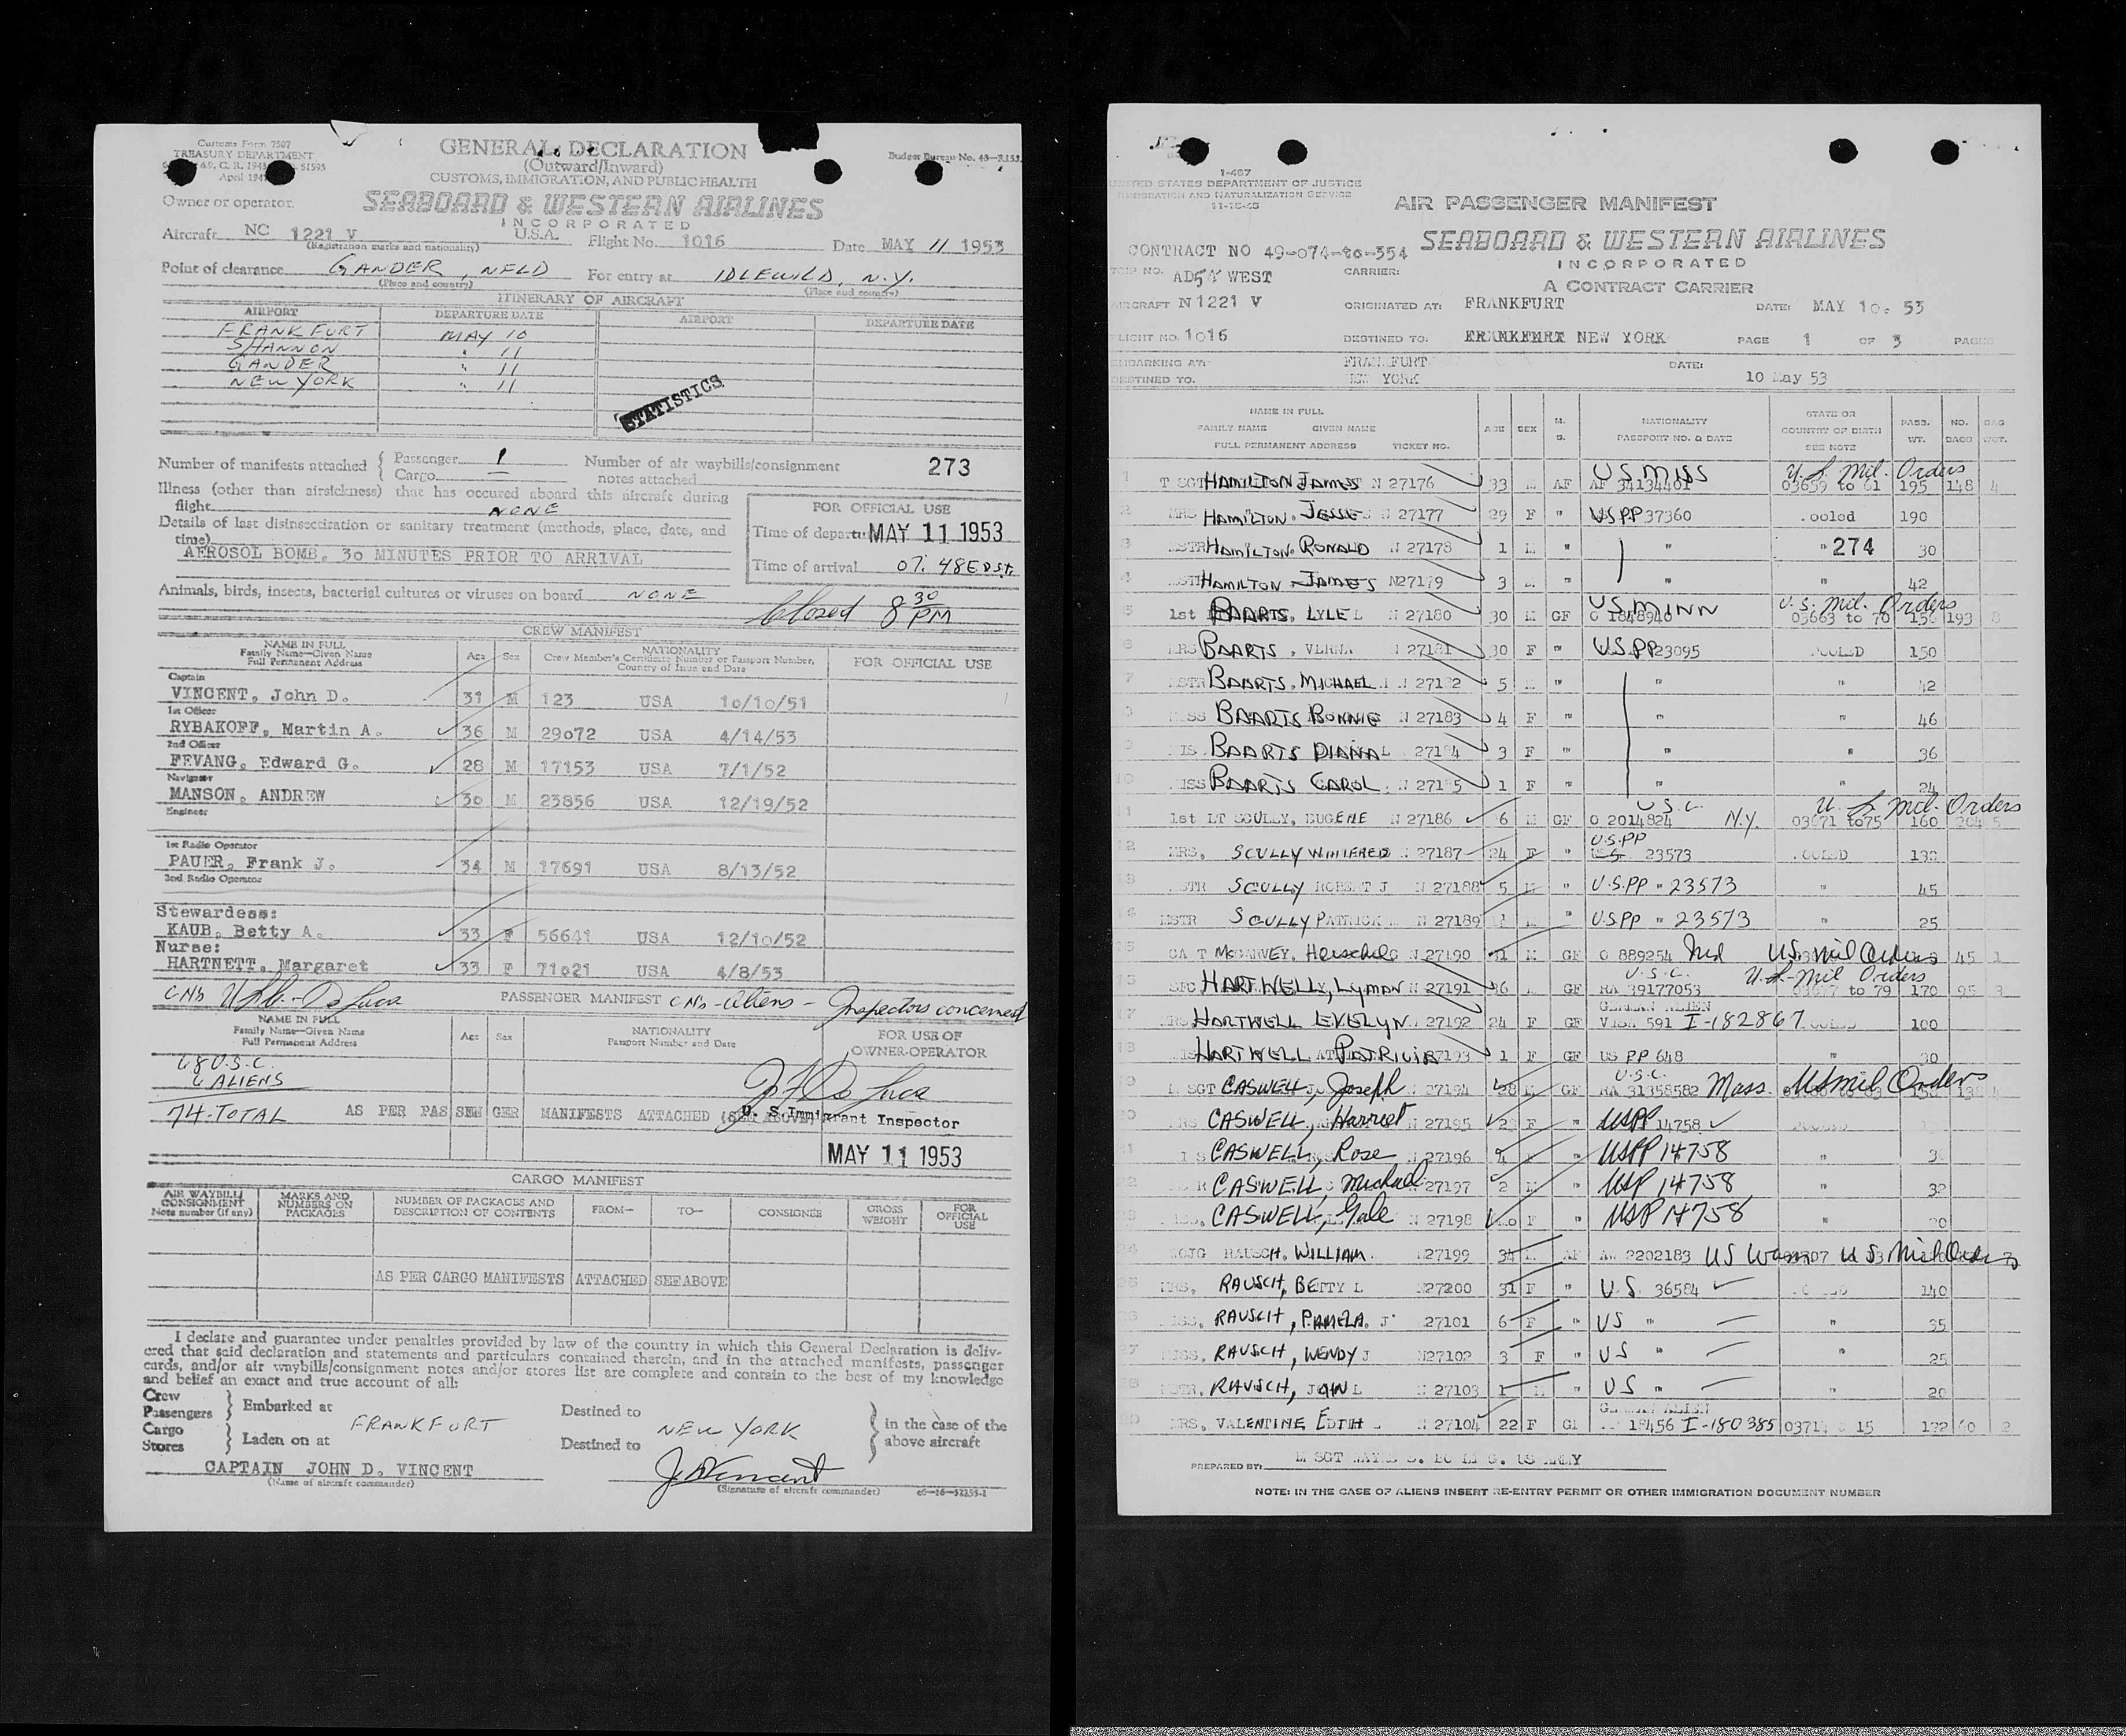 Customs Form 7507
TREASURY DEPARTMENT
April 194
51595
GENERAL DECLARATION
(Outward/Inward)
CUSTOMS, IMMIGRATION, AND PUBLIC HEALTH
Budget Bureau No. 43-R153
Owner or operator
SEABOARD & WESTERN AIRLINES
INCORPORATED
Aircraft NC 1221 V U.S.A. Flight No. 1016 Date MAY 11 1953
(Registration marks and nationality)
Point of clearance GANDER, NFLD For entry at IDLEWILD, N.Y.
(Place and country) (Place and country)
ITINERARY OF AIRCRAFT
AIRPORT DEPARTURE DATE AIRPORT DEPARTURE DATE
FRANKFURT MAY 10
SHANNON " 11
GANDER " 11
NEW YORK " 11
STATISTICS
Number of manifests attached { Passenger 1 Number of air waybills/consignment 273
Cargo — notes attached
Illness (other than airsickness) that has occured aboard this aircraft during
flight NONE
FOR OFFICIAL USE
Details of last disinsectization or sanitary treatment (methods, place, date, and
time)
AEROSOL BOMB. 30 MINUTES PRIOR TO ARRIVAL
Time of departu MAY 11 1953
Time of arrival 07:48 E.D.S.T.
Animals, birds, insects, bacterial cultures or viruses on board NONE
Closed 8 30 PM
CREW MANIFEST
NAME IN FULL
Family Name—Given Name
Full Permanent Address
Age Sex
NATIONALITY
Crew Member's Certificate Number or Passport Number,
Country of Issue and Date
FOR OFFICIAL USE
Captain
VINCENT, John D. 31 M 123 USA 10/10/51
1st Officer
RYBAKOFF, Martin A. 36 M 29072 USA 4/14/53
2nd Officer
FEVANG, Edward G. 28 M 17153 USA 7/1/52
Navigator
MANSON, ANDREW 30 M 23856 USA 12/19/52
Engineer
1st Radio Operator
PAUER, Frank J. 34 M 17691 USA 8/13/52
2nd Radio Operator
Stewardess:
KAUB, Betty A. 33 F 56641 USA 12/10/52
Nurse:
HARTNETT, Margaret 33 F 71021 USA 4/8/53
PASSENGER MANIFEST
Aliens - Inspectors concerned
NAME IN FULL
Family Name—Given Name
Full Permanent Address
Age Sex
NATIONALITY
Passport Number and Date
FOR USE OF
OWNER-OPERATOR
68 U.S.C.
6 ALIENS
74-TOTAL AS PER PASSENGER MANIFESTS ATTACHED (SEE ABOVE)
U. S. Immigrant Inspector
MAY 11 1953
CARGO MANIFEST
AIR WAYBILL/
CONSIGNMENT
Note number (if any)
MARKS AND
NUMBERS ON
PACKAGES
NUMBER OF PACKAGES AND
DESCRIPTION OF CONTENTS
FROM— TO— CONSIGNEE
GROSS
WEIGHT
FOR
OFFICIAL
USE
AS PER CARGO MANIFESTS ATTACHED SEE ABOVE
I declare and guarantee under penalties provided by law of the country in which this General Declaration is deliv-
ered that said declaration and statements and particulars contained therein, and in the attached manifests, passenger
cards, and/or air waybills/consignment notes and/or stores list are complete and contain to the best of my knowledge
and belief an exact and true account of all:
Crew
Passengers } Embarked at FRANKFURT Destined to NEW YORK
Cargo
Stores } Laden on at Destined to
} in the case of the
above aircraft
CAPTAIN JOHN D. VINCENT
(Name of aircraft commander)
J D Vincent
(Signature of aircraft commander)
1-467
UNITED STATES DEPARTMENT OF JUSTICE
IMMIGRATION AND NATURALIZATION SERVICE
11-15-45
AIR PASSENGER MANIFEST
CONTRACT NO 49-074-to-354
SEABOARD & WESTERN AIRLINES
INCORPORATED
A CONTRACT CARRIER
TRIP NO. AD54 WEST CARRIER:
AIRCRAFT N1221 V ORIGINATED AT: FRANKFURT DATE: MAY 10. 53
FLIGHT NO. 1016 DESTINED TO: FRANKFURT NEW YORK PAGE 1 OF 3 PAGES
EMBARKING AT: FRANKFURT DATE:
DESTINED TO. NEW YORK 10 May 53
NAME IN FULL
FAMILY NAME GIVEN NAME
FULL PERMANENT ADDRESS TICKET NO.
AGE SEX M. S.
NATIONALITY
PASSPORT NO. & DATE
STATE OR
COUNTRY OF BIRTH
SEE NOTE
PASS. WT. NO. BAGG BAG WGT.
1 T SGT HAMILTON JAMES N 27176 33 M AF US MISS AF 34134401 U.S. Mil. Orders 03659 to 61 195 148 4
2 MRS HAMILTON. JESSE N 27177 29 F " US PP 37360 .ooled 190
3 MSTR HAMILTON. RONALD N 27178 1 M " " " 274 30
4 HAMILTON JAMES N27179 3 M " " " 42
5 1st BAARTS, LYLE L N 27180 30 M GF US MINN O 1848940 U.S. Mil. Orders 03663 to 70 193 8
6 MRS BAARTS, VERNA N 27181 30 F " US PP 23095 POOLED 150
7 MSTR BAARTS, MICHAEL N 27182 5 M " " "
8 MISS BAARTS BONNIE N 27183 4 F " " " 46
9 BAARTS DIANA 27184 3 F " " " 36
10 MISS BAARTS CAROL N 27185 1 F " " 24
11 1st LT SCULLY, EUGENE N 27186 M GF U.S.C. O 2014824 N.Y. U.S. Mil. Orders 03671 to75 160 5
12 MRS, SCULLY WINIFRED 27187 24 F " U.S.PP 23573 POOLED 130
13 MSTR SCULLY ROBERT J N 27188 5 M " U.S.PP " 23573 " 45
14 MSTR SCULLY PATRICK N 27189 M " U.S.PP " 23573 " 25
15 MCGARVEY, Herschel N 27190 M GF O 889254 Md US Mil Orders 45 1
16 SFC HARTWELL, Lyman N 27191 M GF U.S.C. RA 39177053 U.S. Mil Orders to 79 170 95
17 MRS HARTWELL EVELYN 27192 24 F GF GERMAN ALIEN VISA 591 I-182867 POOLED 100
18 HARTWELL PATRICIA 27193 1 F GF US PP 648 " 30
19 M SGT CASWELL, Joseph 27194 28 M GF U.S.C. RA 31358582 Mass. US mil Orders
20 MRS CASWELL, Harriet N 27195 F " USPP 14758 POOLED
21 CASWELL, Rose N 27196 4 F " USPP 14758 "
22 CASWELL, Michael 27197 2 M " USP 14758 "
23 CASWELL, Gale N 27198 F " USP 14758 "
24 WOJG RAUSCH, WILLIAM. N27199 34 M AF AW 2202183 US U S Mil Orders
25 MRS, RAUSCH, BETTY L N27200 31 F " U.S. 36584 140
26 MISS, RAUSCH, PAMELA. J 27101 6 F " US " " 35
27 MISS, RAUSCH, WENDY J N27102 3 F " US " " 25
28 MSTR, RAUSCH, JOHN L N 27103 1 M " US " " 20
29 MRS, VALENTINE EDITH N 27104 22 F GF GERMAN ALIEN 18456 I-180385 15 132 60 2
PREPARED BY: M SGT US ARMY
NOTE: IN THE CASE OF ALIENS INSERT RE-ENTRY PERMIT OR OTHER IMMIGRATION DOCUMENT NUMBER